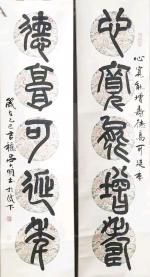 心寬能增壽
德高可延年
心寬能增壽德高可延年
歲在乙巳